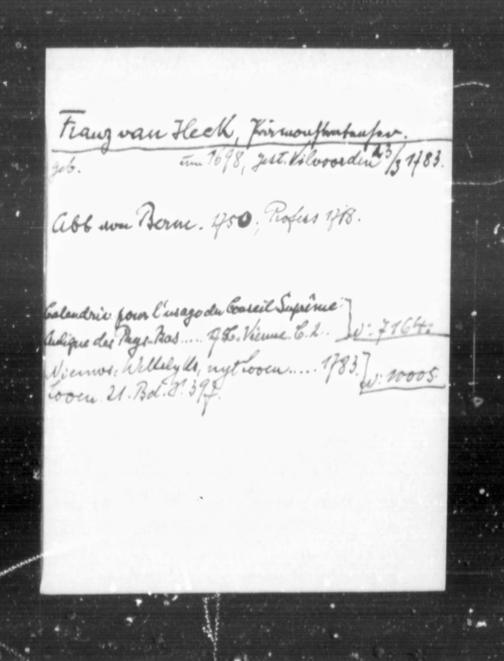 Franz van Heck, Prämonstratenser.
geb. um 1698, gest. Vilvoorden 23/3 1783.
Abb von Berne. 1750, Profess 1718.
Calendrier pour l'usage du Conseil Suprême
des Pays-Bas ..... Vienne C. 2. N: 7164.
Nieuws, Wekkelyks, uyt Loven ..... 1783.
Loven. 21. Bd. S: 397. N: 10005.